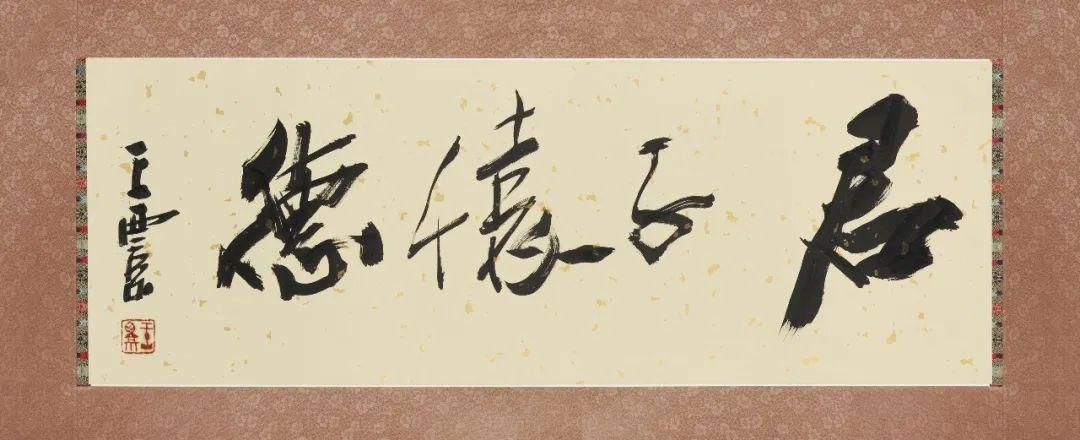 君子懷德
王西京